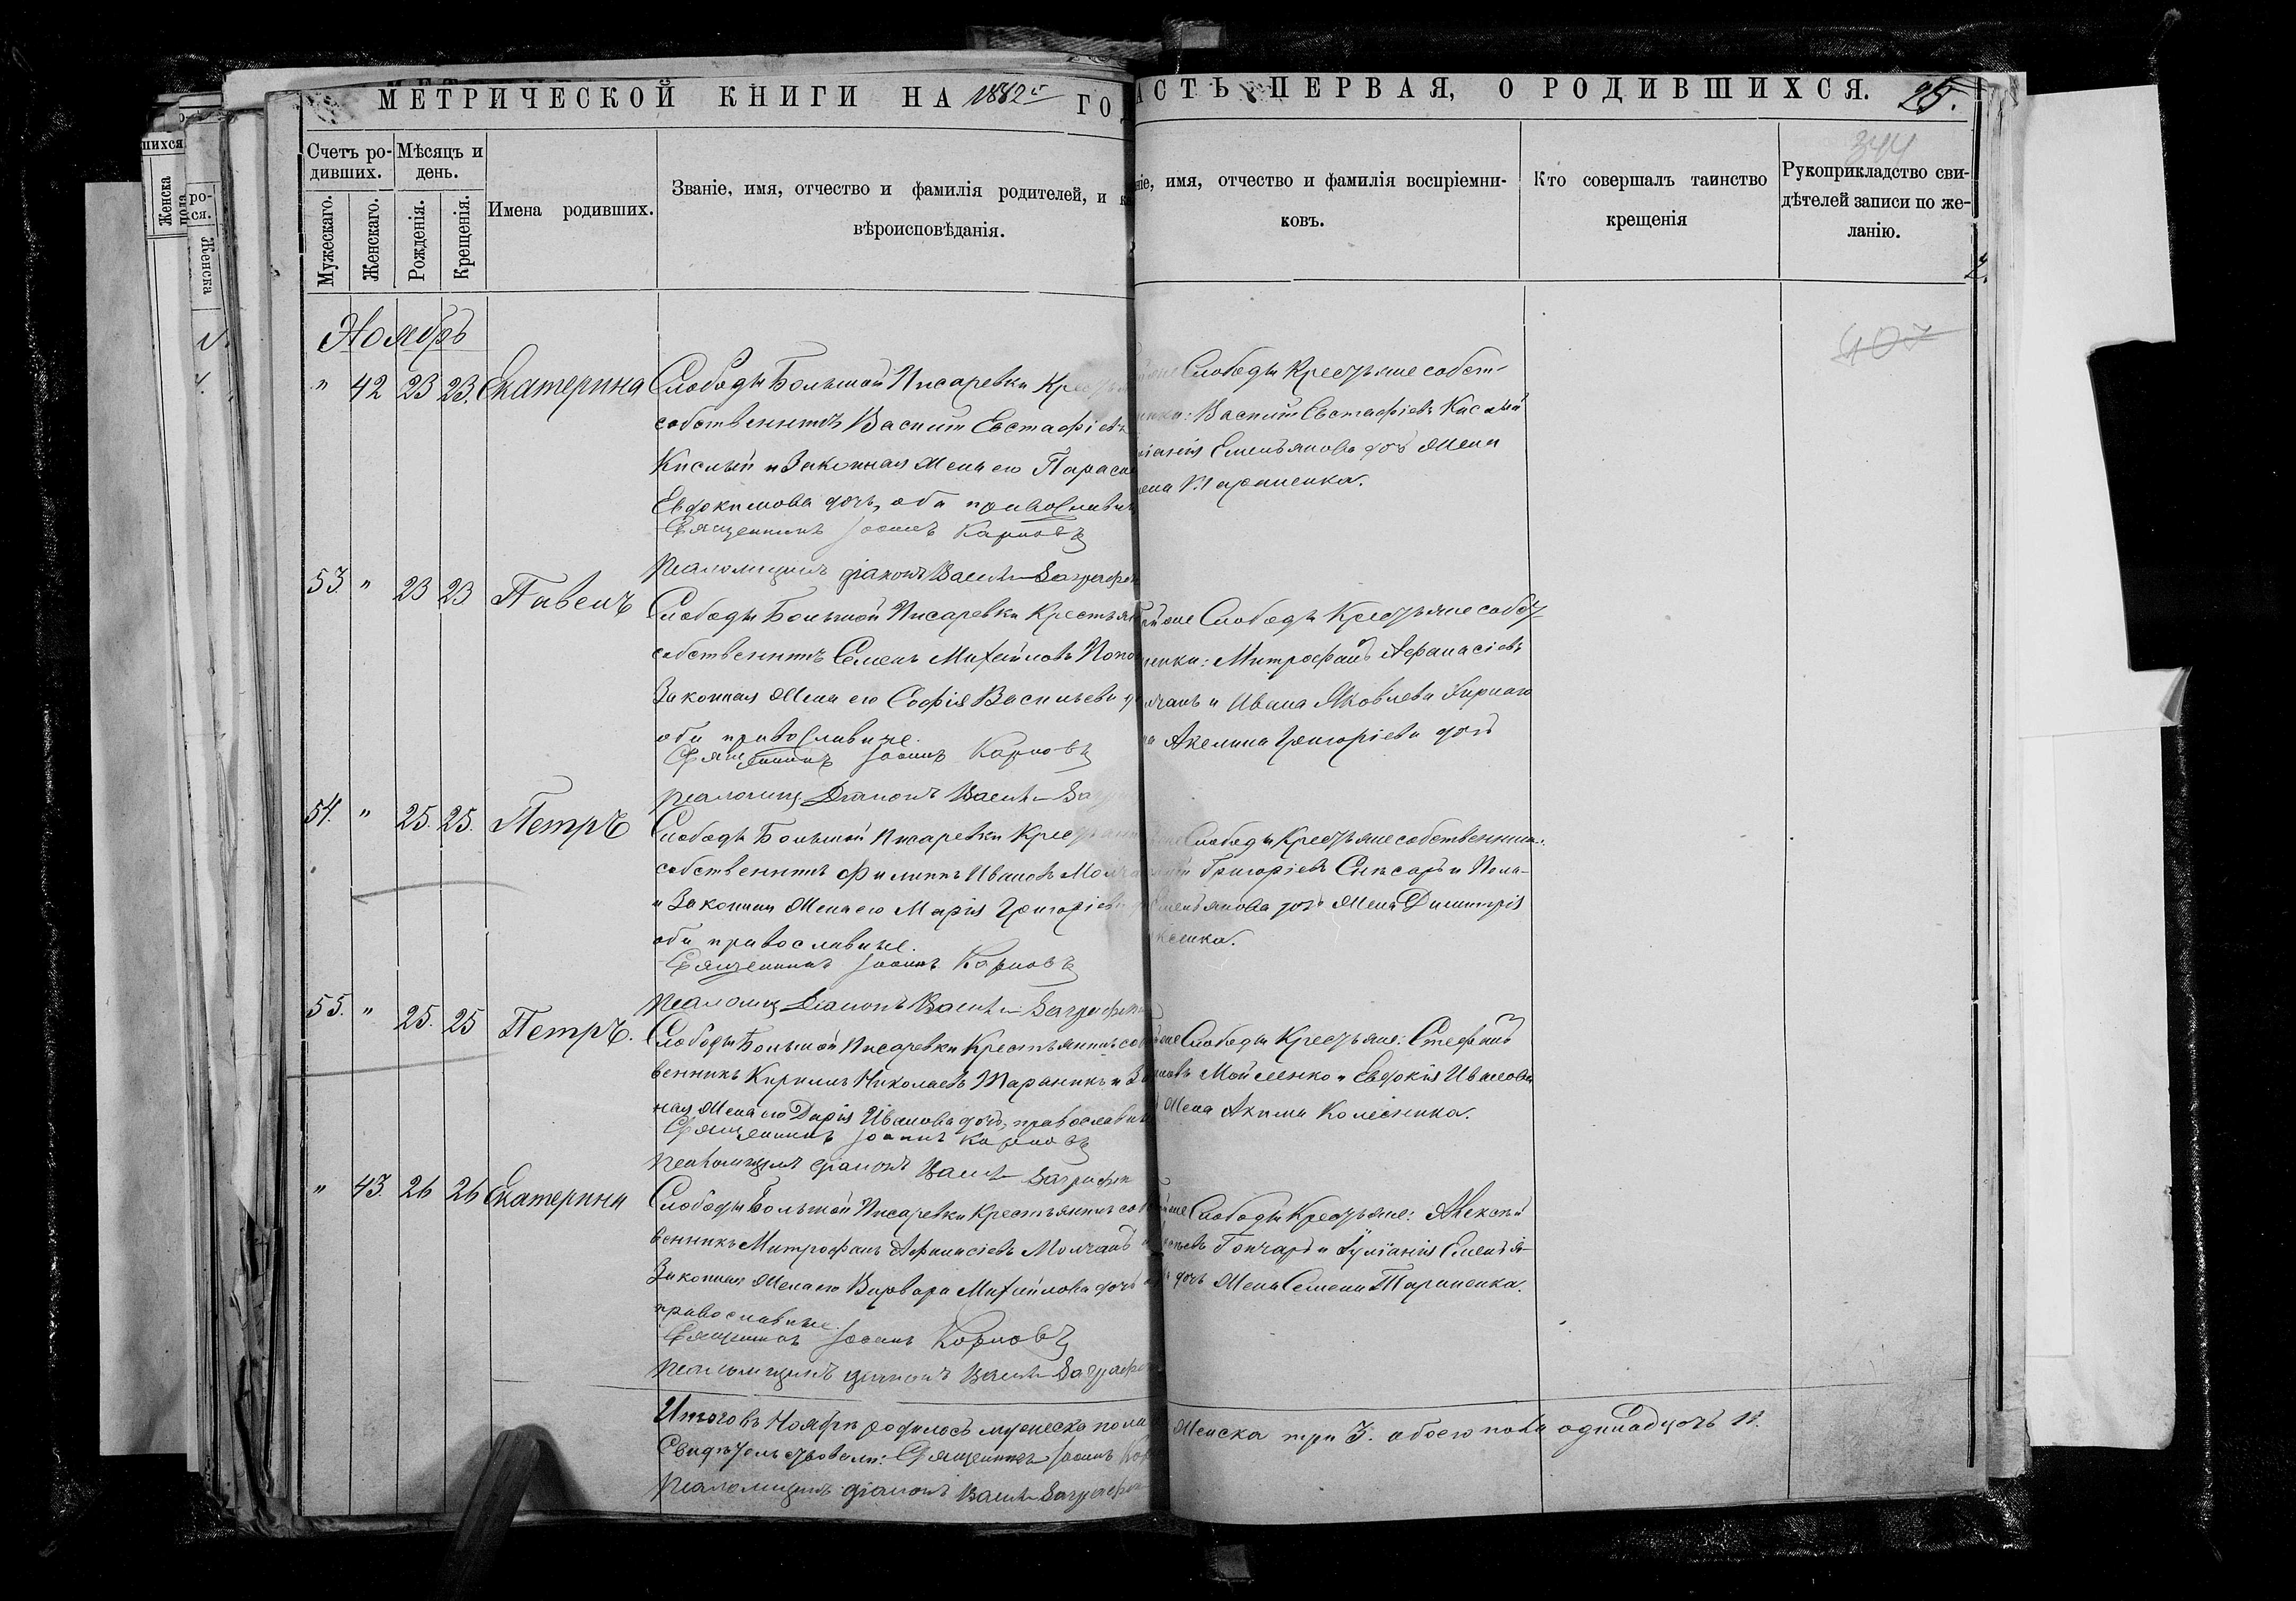 МЕТРИЧЕСКОЙ КНИГИ НА 1882 ГОД
АСТЬ ПЕРВАЯ, О РОДИВШИХСЯ. 25.
344
Счетъ ро-
дивших.
Мужескаго.
Женскаго.
Мѣсяцъ и
день.
Рожденія.
Крещенія.
Имена родивших.
Званіе, имя, отчество и фамилія родителей, и
вѣроисповѣданія.
ніе, имя, отчество и фамилія воспріемни-
ковъ.
Кто совершалъ таинство
крещенія
Рукоприкладство сви-
дѣтелей записи по же-
ланію.
Ноябрь
407
" 42 23 23. Екатерина
Слободы Большой Писаревки
собственникъ Василій Евстафіевъ
Кислый и Законная жена его
Евдокимова дочь, оба
Священникъ Іоаннъ Карповъ
Псаломщикъ діаконъ Васил
Слободы Крестьяне собст-
Василій Евстафіевъ Кислый
Емельянова дочь жена
53. " 23 23 Павелъ
Слободы Большой Писаревки
собственникъ Семенъ Михайловъ
Законная жена его Софія Васильева
оба православные.
Священникъ Іоаннъ Карповъ
Псаломщ. Діаконъ Васил
Слободы Крестьяне собст-
Митрофанъ Афанасіевъ
и Ивана Яковлева
Акелина Григоріева дочь
54. " 25. 25. Петръ
Слободы Большой Писаревки
собственникъ Филиппъ Ивановъ
и Законная жена его Марія Григоріева
оба православные.
Священникъ Іоаннъ Карповъ
Псаломщ Діаконъ Васил
Слободы Крестьяне собственники:
Григоріевъ Слѣсарь и Пела-
дочь жена Димитрія
55. " 25. 25 Петръ.
Слободы Большой Писаревки Крестьянинъ
венникъ Кирилъ Николаевъ Тараникъ и
ная жена его Дарія Иванова дочь,
Священникъ Іоаннъ Карповъ
Псаломщикъ діаконъ Васил
Слободы Крестьяне: Стефанъ
Мойсенко и Евдокія Иванова
жена Акима Колесника.
" 43. 26 26 Екатерина
Слободы Большой Писаревки Крестьянинъ
венникъ Митрофанъ Афанасіевъ Молчанъ
Законная жена его Варвара Михайлова дочь
православные.
Священникъ Іоаннъ Карповъ
Псаломщикъ діаконъ Васил
Слободы Крестьяне: Алексѣй
Гончаръ и Іуліанія Емелья-
дочь жена Семена Тараненка.
Итого въ Ноябрѣ родилось мужеска пола
женска три 3. обоего пола одинадцать 11.
Свидѣтельствовали: Священникъ Іоаннъ
Псаломщикъ діаконъ Васил